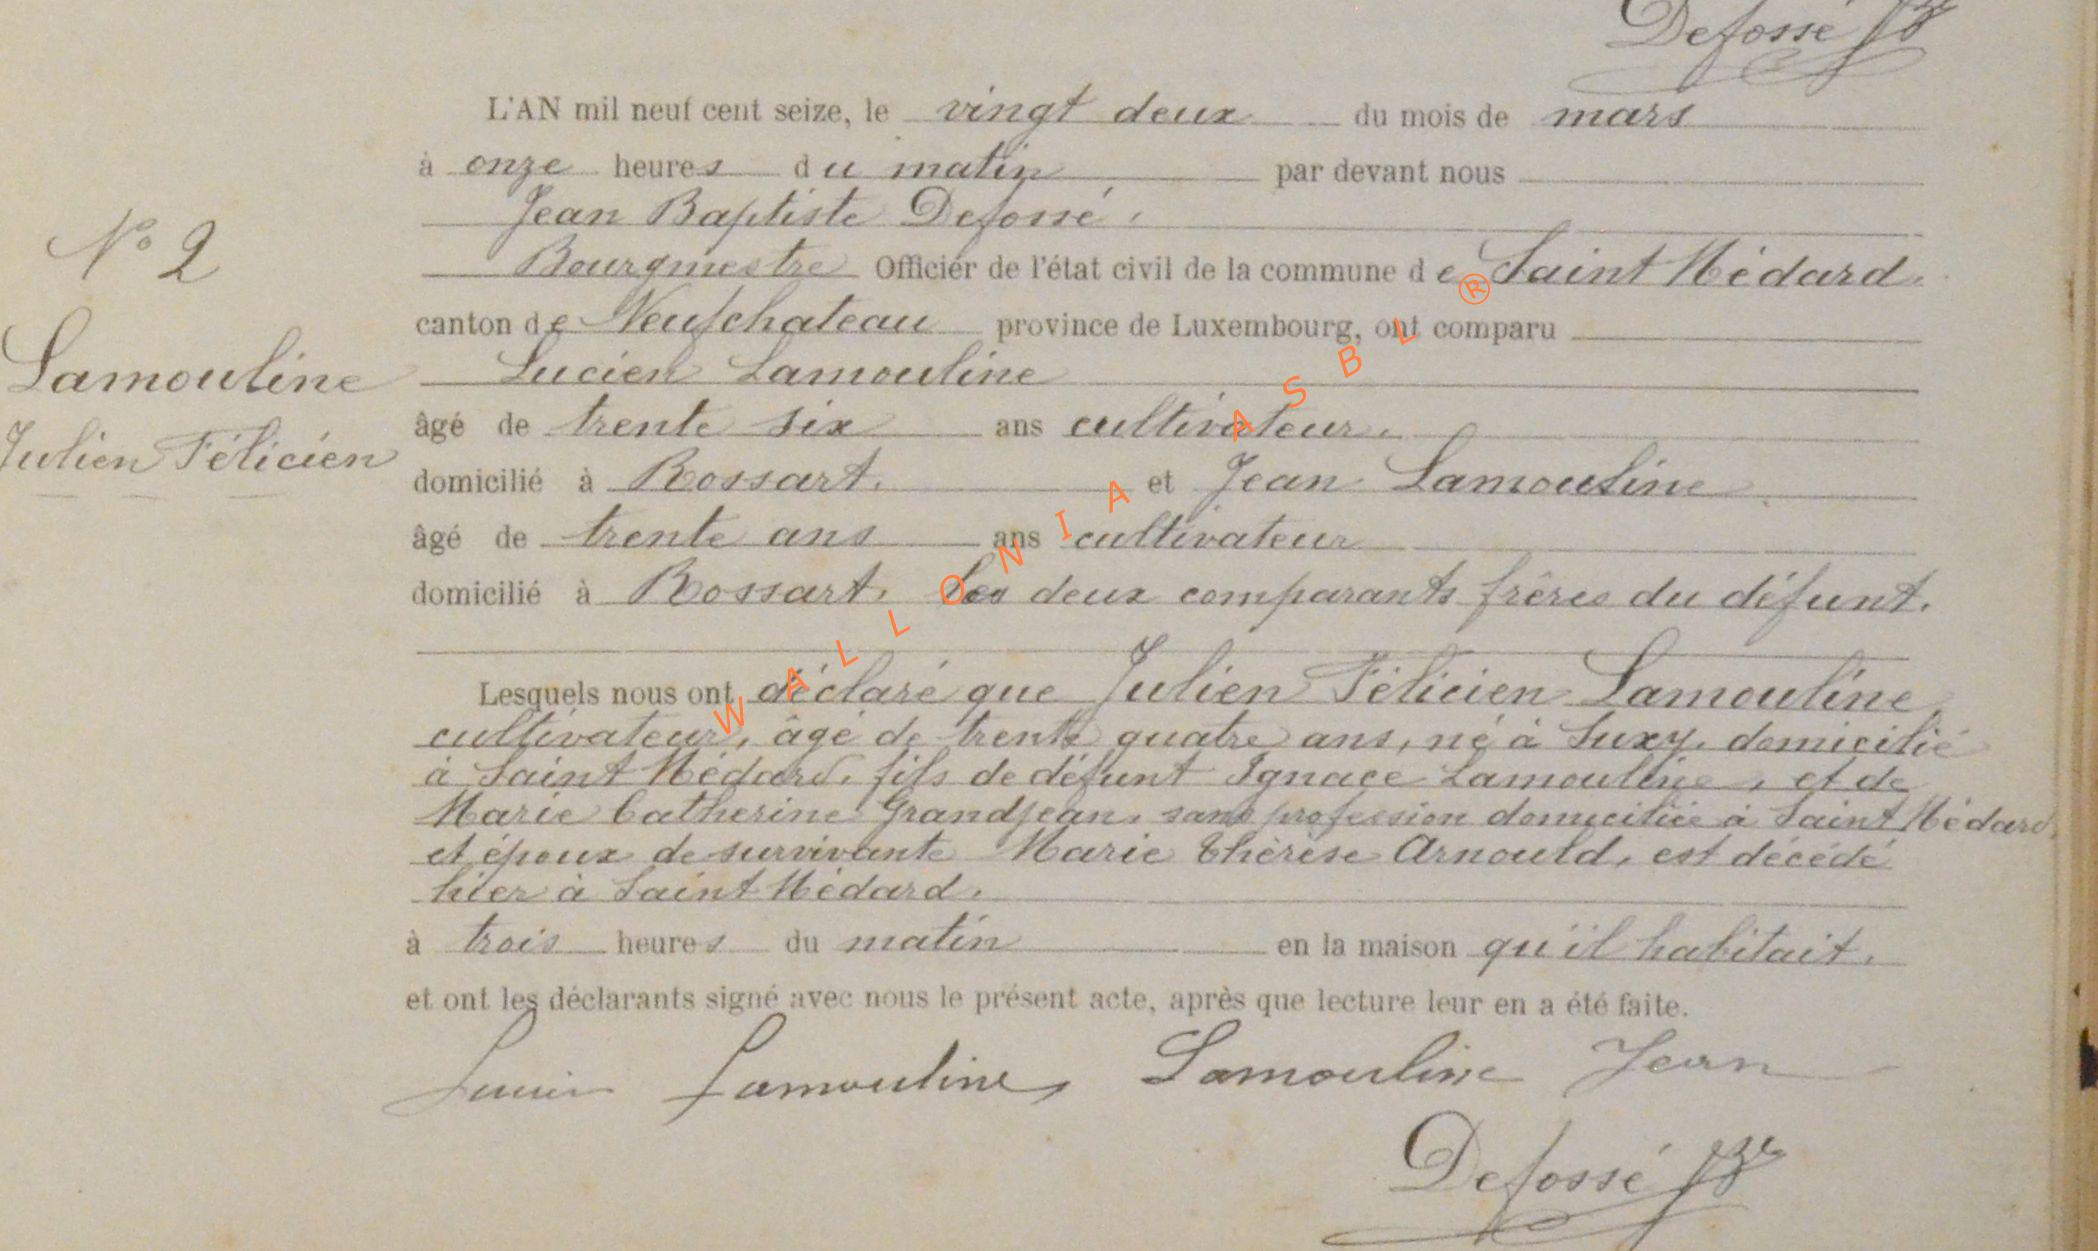 Defossé JB
L'AN mil neuf cent seize, le vingt deux du mois de mars
à onze heures du matin par devant nous
Jean Baptiste Defossé,
Bourgmestre Officier de l'état civil de la commune de Saint Médard.
canton de Neufchateau province de Luxembourg, ont comparu
Lucien Lamouline
âgé de trente six ans cultivateur.
domicilié à Rossart. et Jean Lamouline
âgé de trente ans ans cultivateur
domicilié à Rossart. Les deux comparants frères du défunt.
Lesquels nous ont déclaré que Julien Félicien Lamouline,
cultivateur, âgé de trente quatre ans, né à Suxy, domicilié
à Saint Médard, fils de défunt Ignace Lamouline, et de
Marie Catherine Grandjean, sans profession domiciliée à Saint Médard,
et époux de survivante Marie Thérèse Arnould, est décédé
hier à Saint Médard.
à trois heures du matin en la maison qu'il habitait.
et ont les déclarants signé avec nous le présent acte, après que lecture leur en a été faite.
Lucien Lamouline Lamouline Jean
Defossé JB
N° 2
Lamouline
Julien Félicien
WALLONIA ASBL ®